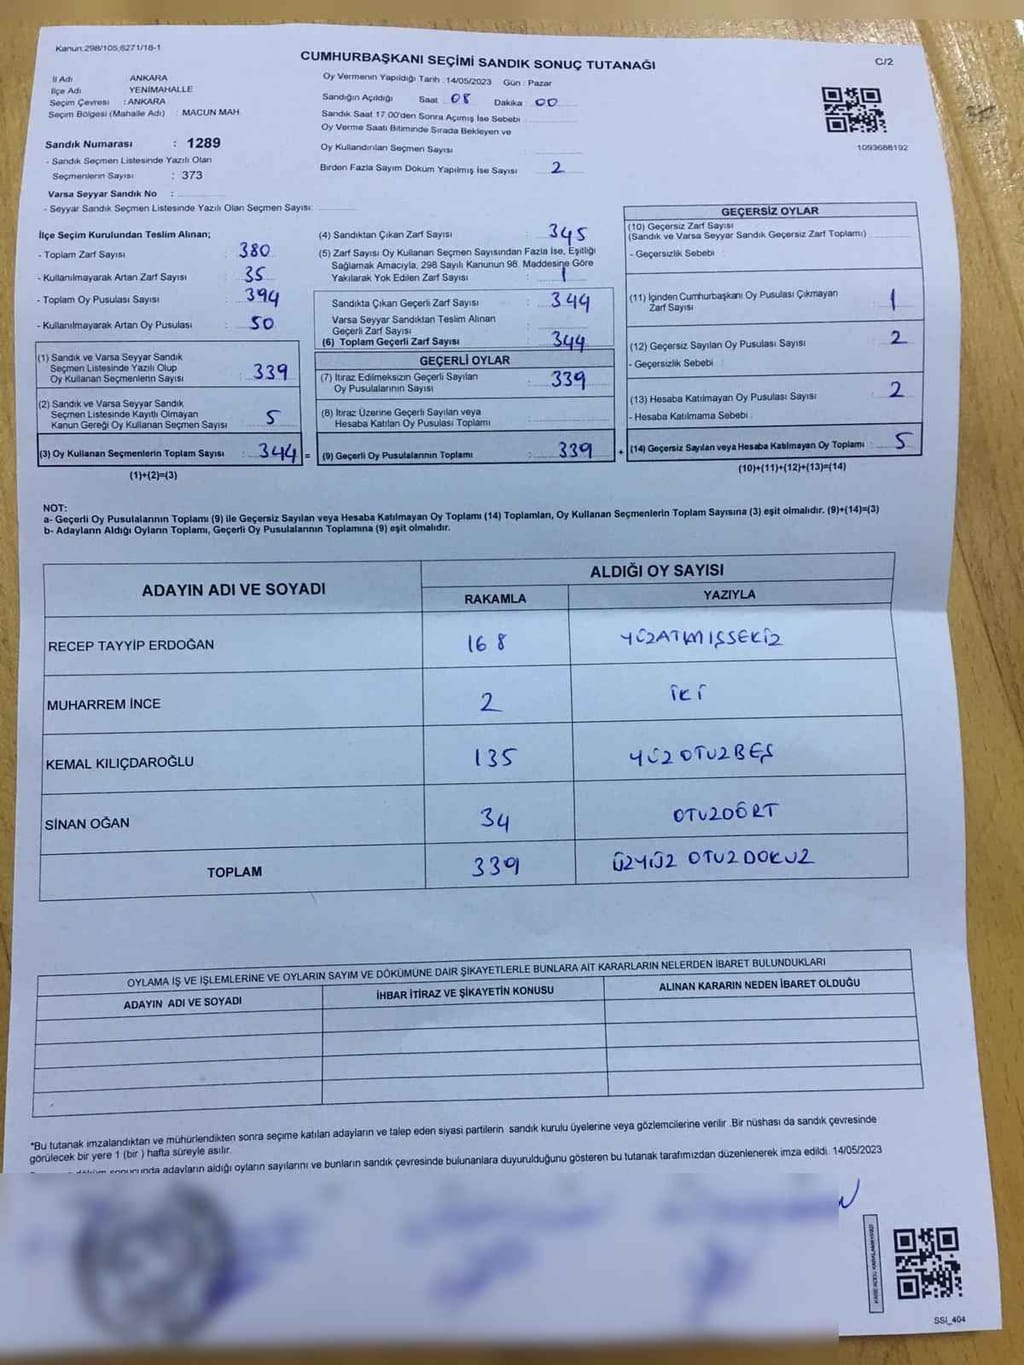 Kanun:298/105,6271/18-1
CUMHURBAŞKANI SEÇİMİ SANDIK SONUÇ TUTANAĞI
C/2
İl Adı ANKARA
İlçe Adı YENİMAHALLE
Seçim Çevresi : ANKARA
Seçim Bölgesi (Mahalle Adı) : MACUN MAH
Oy Vermenin Yapıldığı Tarih : 14/05/2023 Gün : Pazar
Sandığın Açıldığı Saat 08 Dakika 00
Sandık Saat 17.00'den Sonra Açmış İse Sebebi
Oy Verme Saati Bitiminde Sırada Bekleyen ve
Oy Kullandırılan Seçmen Sayısı
Birden Fazla Sayım Döküm Yapılmış İse Sayısı 2
1093688192
Sandık Numarası : 1289
- Sandık Seçmen Listesinde Yazılı Olan
Seçmenlerin Sayısı : 373
Varsa Seyyar Sandık No :
- Seyyar Sandık Seçmen Listesinde Yazılı Olan Seçmen Sayısı:
İlçe Seçim Kurulundan Teslim Alınan;
- Toplam Zarf Sayısı : 380
- Kullanılmayarak Artan Zarf Sayısı : 35
- Toplam Oy Pusulası Sayısı : 394
- Kullanılmayarak Artan Oy Pusulası : 50
(1) Sandık ve Varsa Seyyar Sandık
Seçmen Listesinde Yazılı Olup
Oy Kullanan Seçmenlerin Sayısı : 339
(2) Sandık ve Varsa Seyyar Sandık
Seçmen Listesinde Kayıtlı Olmayan
Kanun Gereği Oy Kullanan Seçmen Sayısı : 5
(3) Oy Kullanan Seçmenlerin Toplam Sayısı : 344 =
(1)+(2)=(3)
(4) Sandıktan Çıkan Zarf Sayısı : 345
(5) Zarf Sayısı Oy Kullanan Seçmen Sayısından Fazla İse, Eşitliği
Sağlamak Amacıyla, 298 Sayılı Kanunun 98. Maddesine Göre
Yakılarak Yok Edilen Zarf Sayısı : 1
Sandıkta Çıkan Geçerli Zarf Sayısı : 344
Varsa Seyyar Sandıktan Teslim Alınan
Geçerli Zarf Sayısı
(6) Toplam Geçerli Zarf Sayısı : 344
GEÇERLİ OYLAR
(7) İtiraz Edilmeksizin Geçerli Sayılan
Oy Pusulalarının Sayısı : 339
(8) İtiraz Üzerine Geçerli Sayılan veya
Hesaba Katılan Oy Pusulası Toplamı
(9) Geçerli Oy Pusulalarının Toplamı : 339 +
GEÇERSİZ OYLAR
(10) Geçersiz Zarf Sayısı
(Sandık ve Varsa Seyyar Sandık Geçersiz Zarf Toplamı)
- Geçersizlik Sebebi :
(11) İçinden Cumhurbaşkanı Oy Pusulası Çıkmayan
Zarf Sayısı 1
(12) Geçersiz Sayılan Oy Pusulası Sayısı : 2
- Geçersizlik Sebebi :
(13) Hesaba Katılmayan Oy Pusulası Sayısı : 2
- Hesaba Katılmama Sebebi :
(14) Geçersiz Sayılan veya Hesaba Katılmayan Oy Toplamı : 5
(10)+(11)+(12)+(13)=(14)
NOT:
a- Geçerli Oy Pusulalarının Toplamı (9) ile Geçersiz Sayılan veya Hesaba Katılmayan Oy Toplamı (14) Toplamları, Oy Kullanan Seçmenlerin Toplam Sayısına (3) eşit olmalıdır. (9)+(14)=(3)
b- Adayların Aldığı Oyların Toplamı, Geçerli Oy Pusulalarının Toplamına (9) eşit olmalıdır.
ADAYIN ADI VE SOYADI ALDIĞI OY SAYISI
RAKAMLA YAZIYLA
RECEP TAYYİP ERDOĞAN 168 YÜZATMIŞSEKİZ
MUHARREM İNCE 2 İKİ
KEMAL KILIÇDAROĞLU 135 YÜZ OTUZBEŞ
SİNAN OĞAN 34 OTUZDÖRT
TOPLAM 339 ÜZYÜZ OTUZ DOKUZ
OYLAMA İŞ VE İŞLEMLERİNE VE OYLARIN SAYIM VE DÖKÜMÜNE DAİR ŞİKAYETLERLE BUNLARA AİT KARARLARIN NELERDEN İBARET BULUNDUKLARI
ADAYIN ADI VE SOYADI İHBAR İTİRAZ VE ŞİKAYETİN KONUSU ALINAN KARARIN NEDEN İBARET OLDUĞU
*Bu tutanak imzalandıktan ve mühürlendikten sonra seçime katılan adayların ve talep eden siyasi partilerin sandık kurulu üyelerine veya gözlemcilerine verilir .Bir nüshası da sandık çevresinde
görülecek bir yere 1 (bir ) hafta süreyle asılır.
sonucunda adayların aldığı oyların sayılarını ve bunların sandık çevresinde bulunanlara duyurulduğunu gösteren bu tutanak tarafımızdan düzenlenerek imza edildi. 14/05/2023
SSI_404